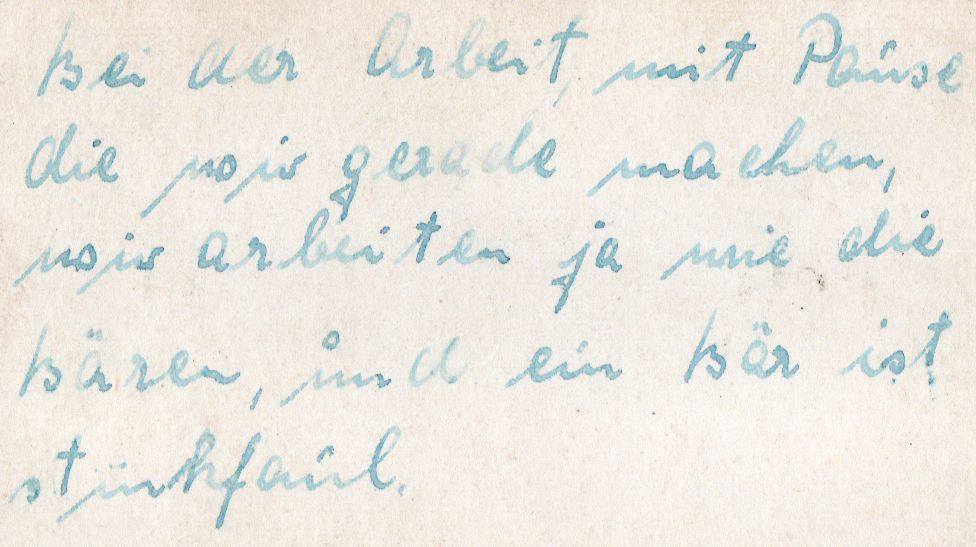 Bei der Arbeit, mit Pause
die wir gerade machen,
wir arbeiten ja wie die
Bären, und ein Bär ist
stinkfaul.